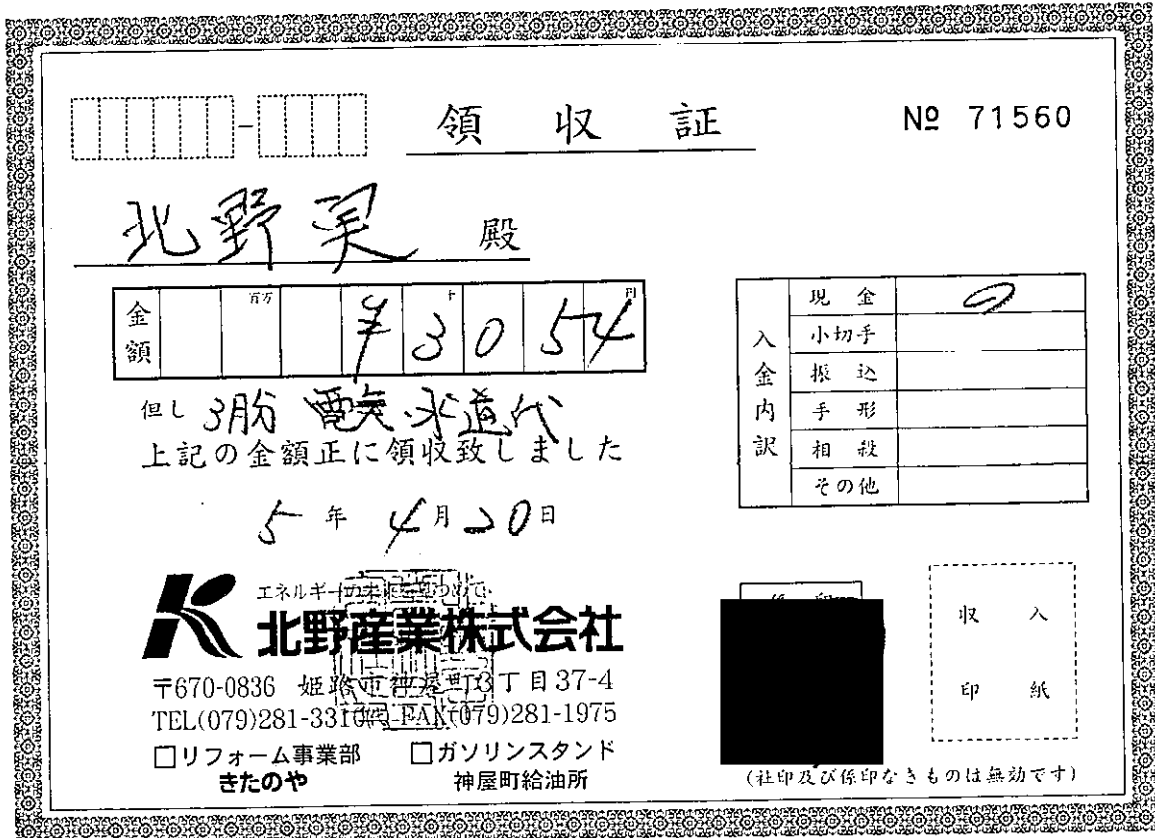 領収証
№ 71560
北野実 殿
金額 百万 千 円
¥3054
但し 3月分 電気・水道代
上記の金額正に領収致しました
5年 4月 20日
入金内訳
現金
小切手
振込
手形
相殺
その他
エネルギーの未来を見つめて
北野産業株式会社
〒670-0836 姫路市神屋町3丁目37-4
TEL(079)281-3310㈹ FAX(079)281-1975
□リフォーム事業部 □ガソリンスタンド
きたのや 神屋町給油所
係印
収入
印紙
(社印及び係印なきものは無効です)